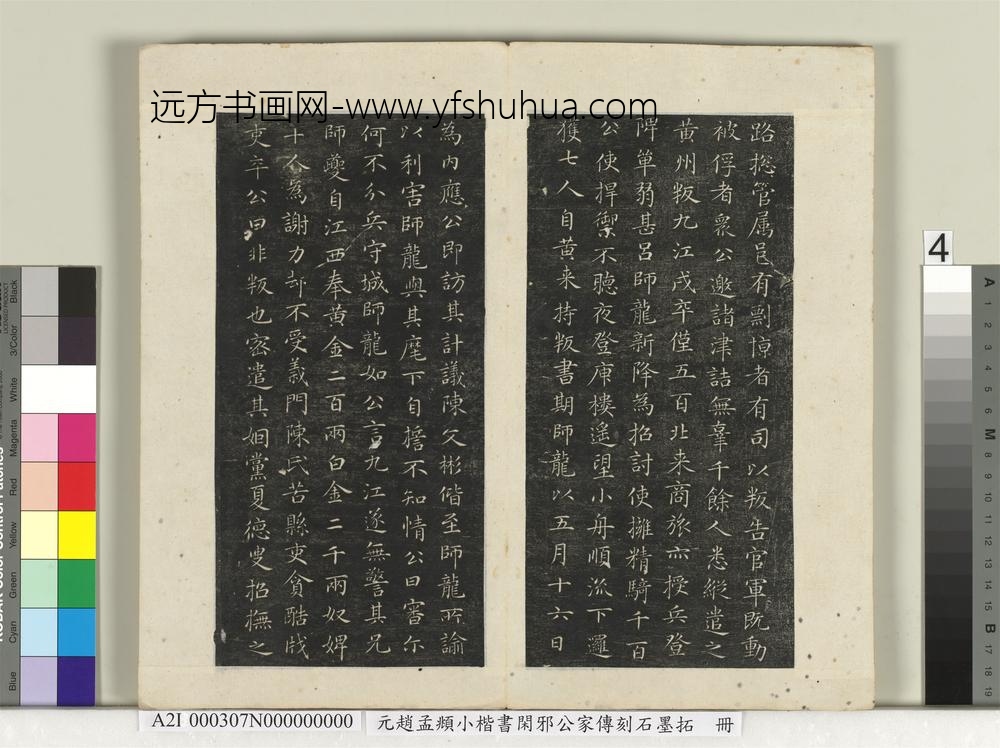 远方书画网-www.yfshuhua.com
路揔管属邑有剽悼者有司以叛告官軍既動
被俘者衆公邀諸津詰無辜千餘人悉縱遣之
黄州叛九江戍卒僅五百北来商旅亦授兵登
陴單弱甚吕師龍新降為招討使擁精騎千百
公使捍禦不聴夜登庾樓遥望小舟順流下邏
獲七人自黄来持叛書期師龍以五月十六日
為内應公即訪其計議陳文彬偕至師龍所諭
以利害師龍與其麾下自擔不知情公曰審尓
何不分兵守城師龍如公言九江遂無警其兄
師夔自江西奉黄金二百兩白金二千兩奴婢
十人為謝力却不受義門陳氏苦縣吏貪酷戕
吏卒公曰非叛也密遣其姻黨夏德叟招撫之
4
A 1 2 3 4 5 6 M 8 9 10 11 12 13 14 15 B 17 18 19
Black
3/Color
White
Magenta
Red
Yellow
Green
Cyan
Blue
A2I 000307N000000000
元趙孟頫小楷書閑邪公家傳刻石墨拓 冊